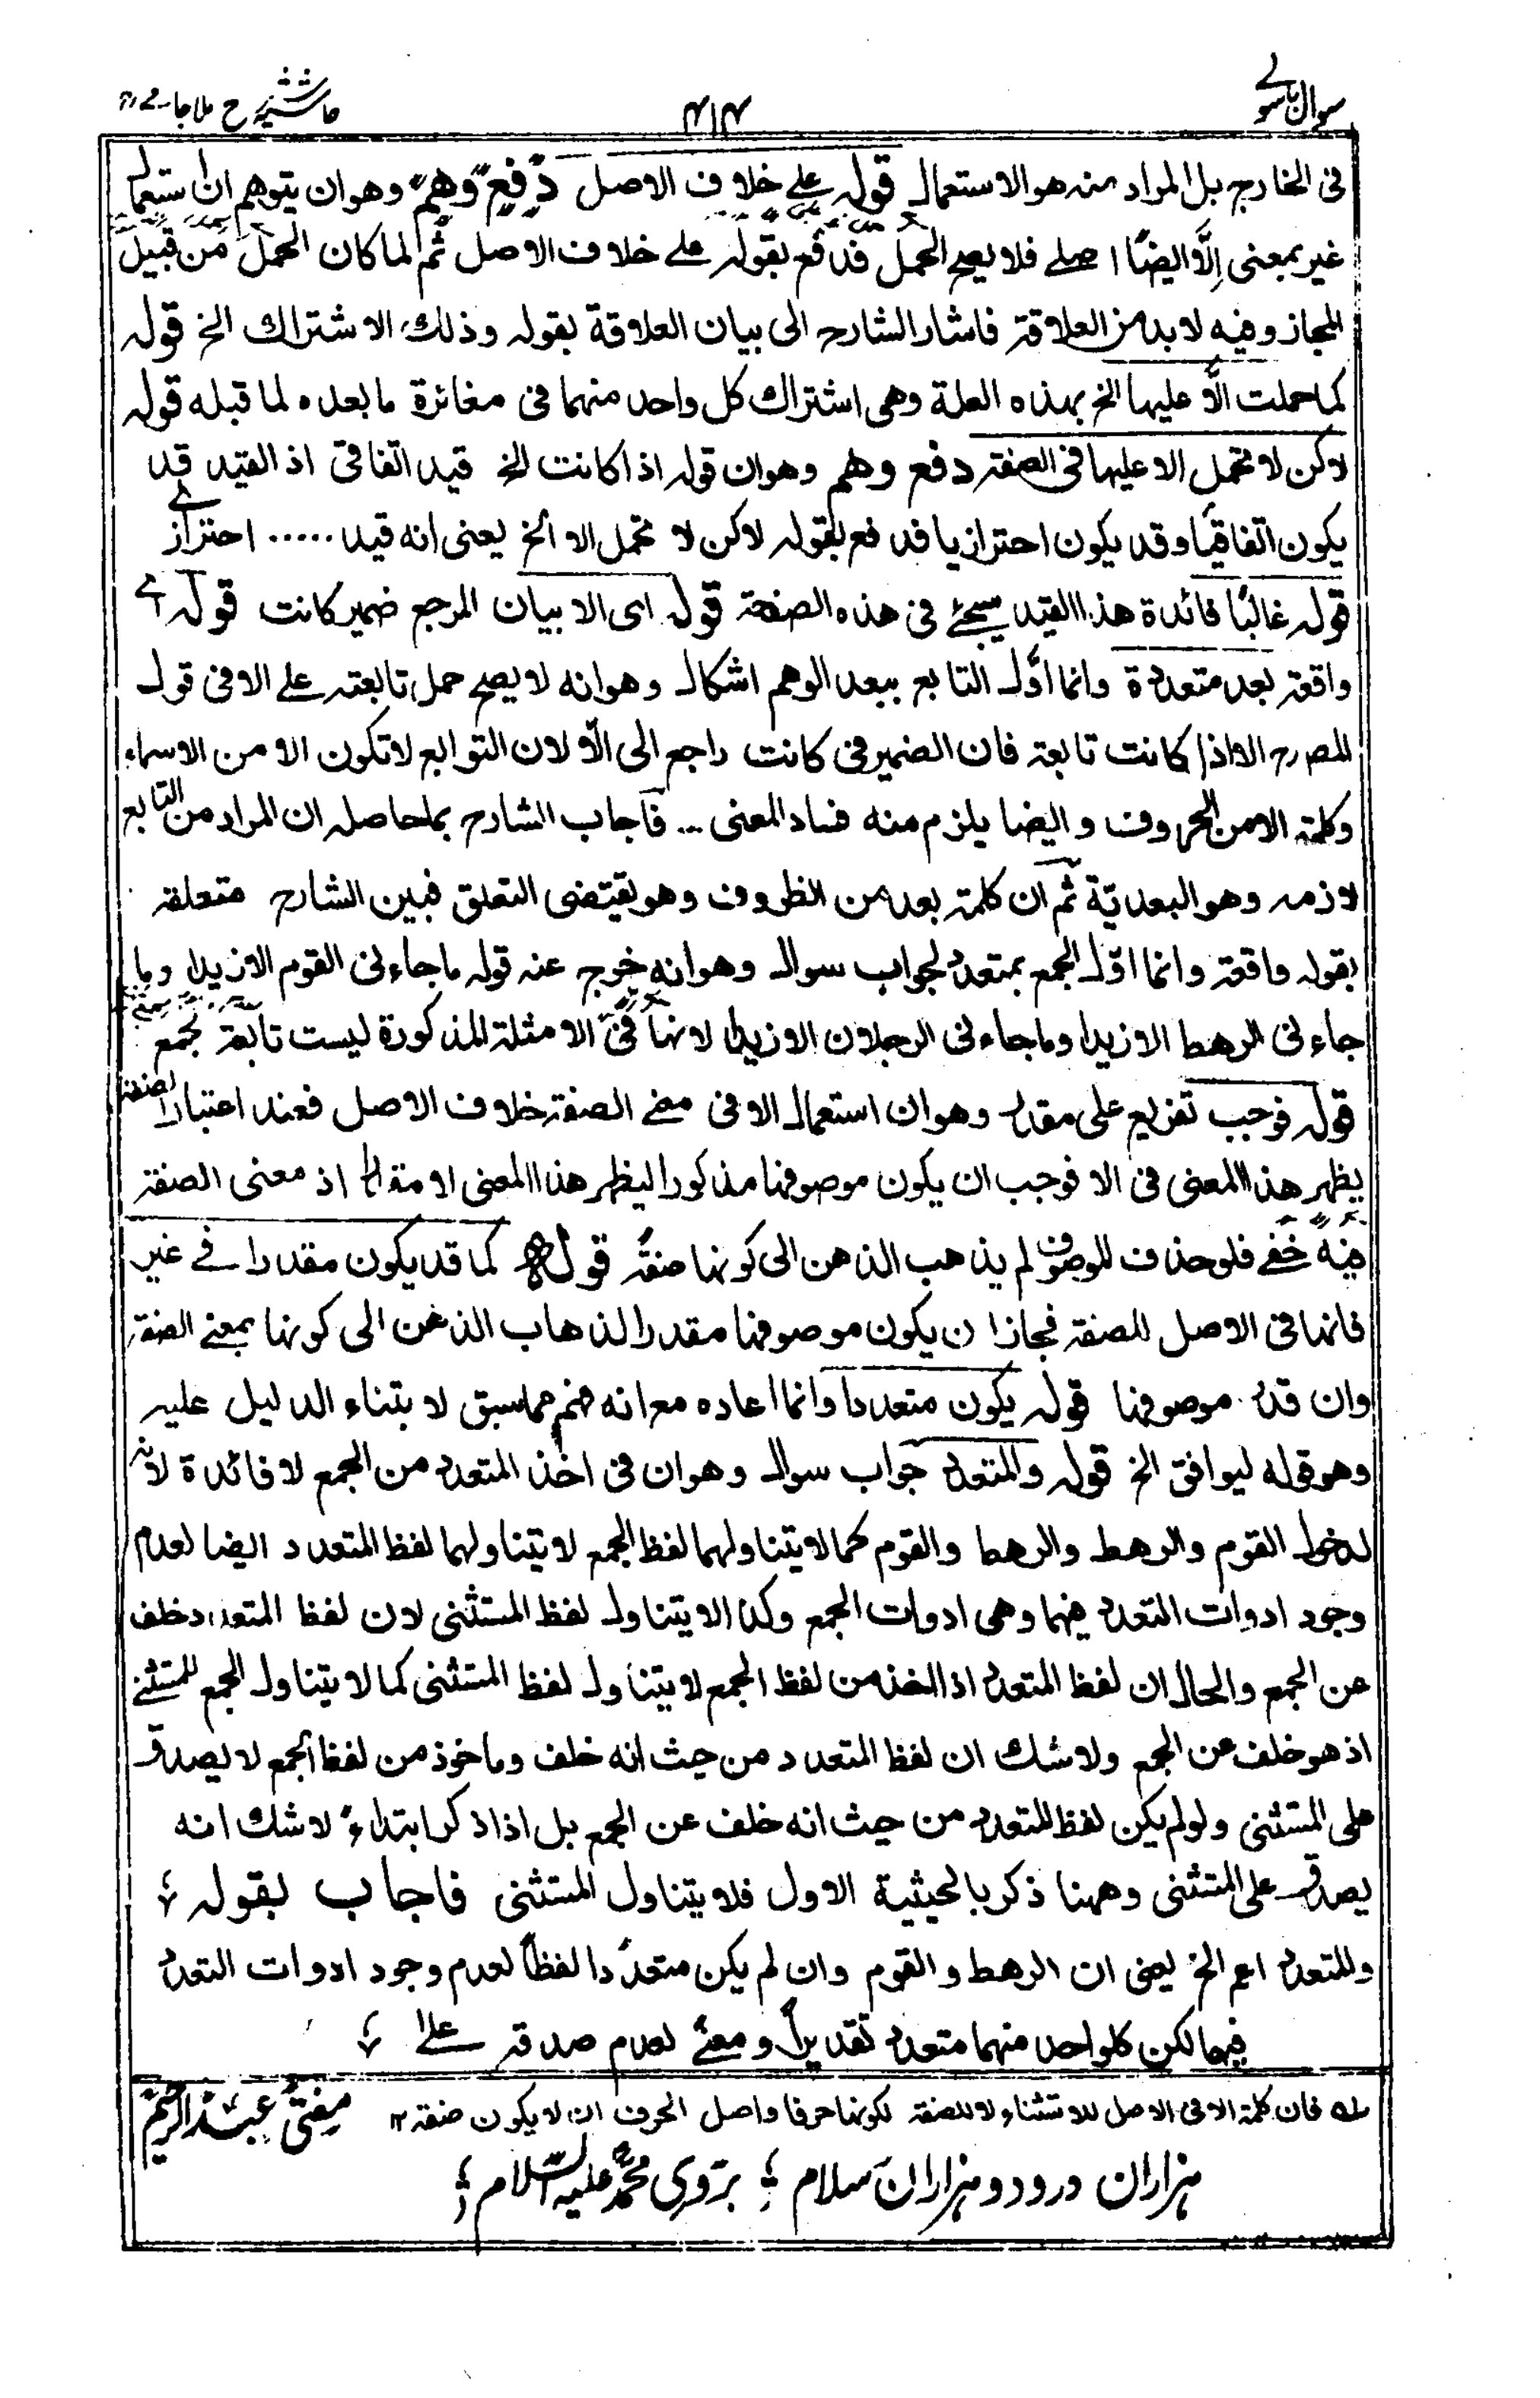 سوال باسولی
۴۱۴
حاشیہ شرح ملا جامی
فی الخارج بل المراد منہ هو الاستعمال قولہ علی خلاف الاصل دفع وهم وهو ان یتوهم ان استعمال
غیر بمعنی الّا ایضًا اصلے فلا یصح الحمل فدفع بقولہ علے خلاف الاصل ثم لما کان الحمل من قبیل
المجاز وفیه لا بد من العلاقة فاشار الشارح الی بیان العلاقة بقولہ وذلك الاشتراك الخ قولہ
کما حملت الّا علیها الخ بهذہ العلة وهی اشتراك کل واحد منهما فی مغائرة ما بعدہ لما قبله قولہ
لاکن لا تحمل الا علیها فی الصفة دفع وهم وهو ان قولہ اذا کانت الخ قید اتفاقی اذ القید قد
یکون اتفاقیًا وقد یکون احترازیا فدفع بقولہ لاکن لا تحمل الا الخ یعنی انه قید ..... احترازی
قولہ غالبًا فائدة هذا القید سیجئ فی هذہ الصفحة قولہ ای الا بیان المرجع ضمیر کانت قولہ اے
واقعة بعد متعددة وانما اوّل التابع ببعد الوهم اشکال وهو انه لا یصح حمل تابعة علے الا فی قول
المصرح الا اذا کانت تابعة فان الضمیر فی کانت راجع الی الّا لان التوابع لا تکون الا من الاسماء
وکلمة الا من الحروف وایضا یلزم منه فساد المعنی ... فاجاب الشارح بما حاصله ان المراد من التابع
لازمہ وهو البعدیّة ثم ان کلمة بعد من الظروف وهو یقتضی التعلق فبین الشارح متعلقہ
بقولہ واقعة وانما اوّل الجمع بمتعدد لجواب سوال وهو انه خرج عنہ قولہ ما جاءنی القوم الا زیدا وما
جاءنی الرهط الا زیدا وما جاءنی الرجلان الا زیدا لانها فی الامثلة المذکورة لیست تابعة لجمع
قولہ فوجب تفریع علی مقدر وهو ان استعمال الا فی معنے الصفة خلاف الاصل فعند اعتبار الصفة
یظهر هذا المعنی فی الا فوجب ان یکون موصوفها مذکورا لیظهر هذا المعنی لا مقدرا اذ معنی الصفة
فیه خفے فلو حذف الموصوف لم یذهب الذهن الی کونها صفة قولہ کما قد یکون مقدرا فے غیر
فانها فی الاصل للصفة فجاز ان یکون موصوفها مقدرا لذهاب الذهن الی کونها بمعنے الصفة
وان قدر موصوفها قولہ یکون متعددا وانما اعاده مع انه فهم مما سبق لابتناء الدلیل علیہ
وهو قوله لیوافق الخ قولہ والمتعدد جواب سوال وهو ان فی اخذ المتعدد من الجمع لا فائدة لانہ
لدخول القوم والرهط والرهط والقوم کما لا یتناولهما لفظ الجمع لا یتناولهما لفظ المتعدد ایضا لعدم
وجود ادوات التعدد فیهما وهی ادوات الجمع وکذا لا یتناول لفظ المستثنی لان لفظ المتعدد خلف
عن الجمع والحال ان لفظ المتعدد اذا اخذ من لفظ الجمع لا یتناول لفظ المستثنی کما لا یتناول الجمع المستثنے
اذ هو خلف عن الجمع ولا شك ان لفظ المتعدد من حیث انه خلف وماخوذ من لفظ الجمع لا یصدق
علی المستثنی ولو لم یکن لفظ المتعدد من حیث انه خلف عن الجمع بل اذا ذکر ابتداءً لا شك انه
یصدق علی المستثنی وههنا ذکر بالحیثیة الاول فلا یتناول المستثنی فاجاب بقولہ
والمتعدد اعم الخ یعنی ان الرهط والقوم وان لم یکن متعددا لفظًا لعدم وجود ادوات التعدد
فیهما لکن کلواحد منهما متعدد تقدیراً ومعنًے لعدم صدقہ علے
لہ فان کلمة الا فی الاصل للاستثناء لا للصفة لکونها حرفا واصل الحرف ان لا یکون صفة ۱۲
مفتی عبد الرحیم
ہزاران درود و ہزاران سلام ؛ بروی محمّد علیہ السّلام ؛